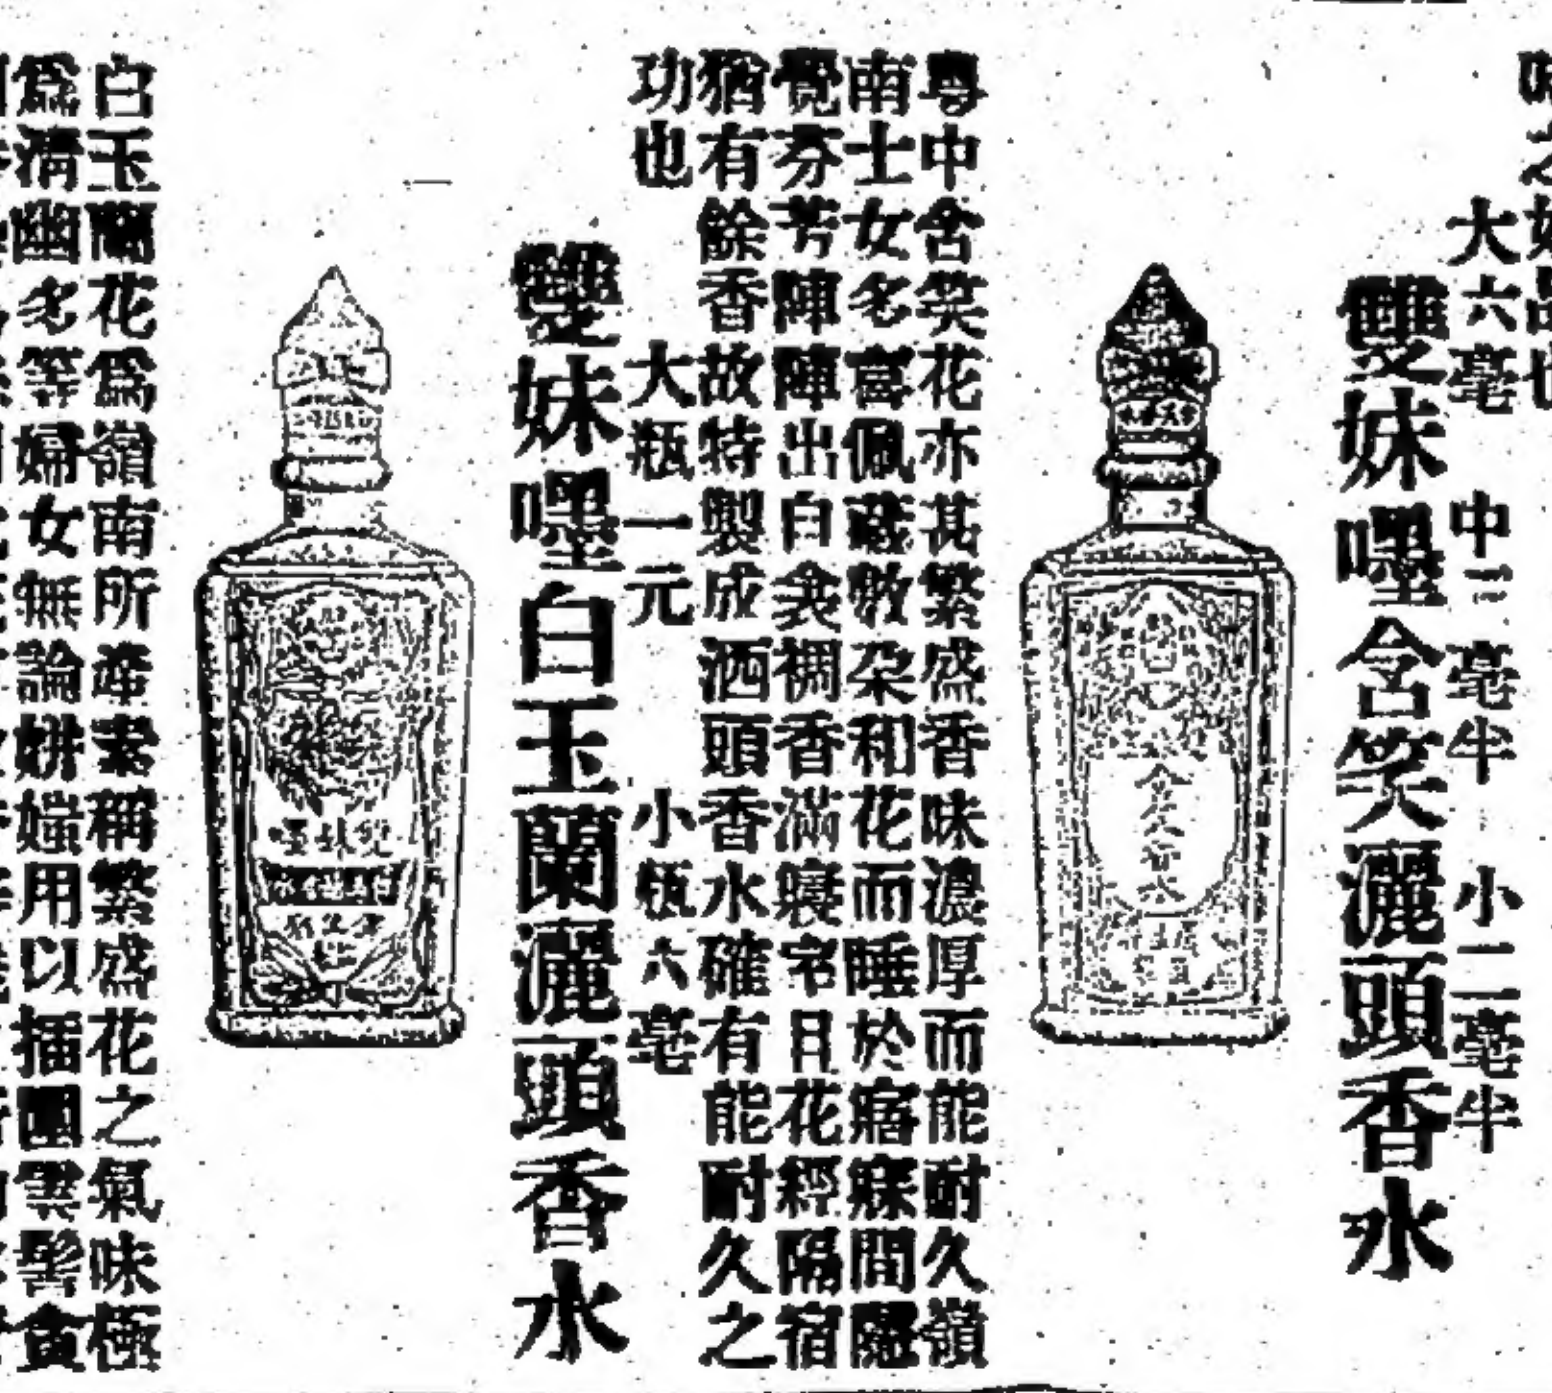 味之妙品也
大六毫　中三毫半　小二毫半
雙妹嚜含笑灑頭香水
含笑香水
粤中含笑花亦甚繁盛香味濃厚而能耐久嶺
南士女多喜佩藏數朶和花而睡於寤寐間隱
覺芬芳陣陣出白衾裯香滿寢帘且花經隔宿
猶有餘香故特製成洒頭香水確有能耐久之
功也
大瓶一元　小瓶六毫
雙妹嚜白玉蘭灑頭香水
白玉蘭花爲嶺南所產素稱繁盛花之氣味極
爲淸幽多等婦女無論妍媸用以插團雲髻貪